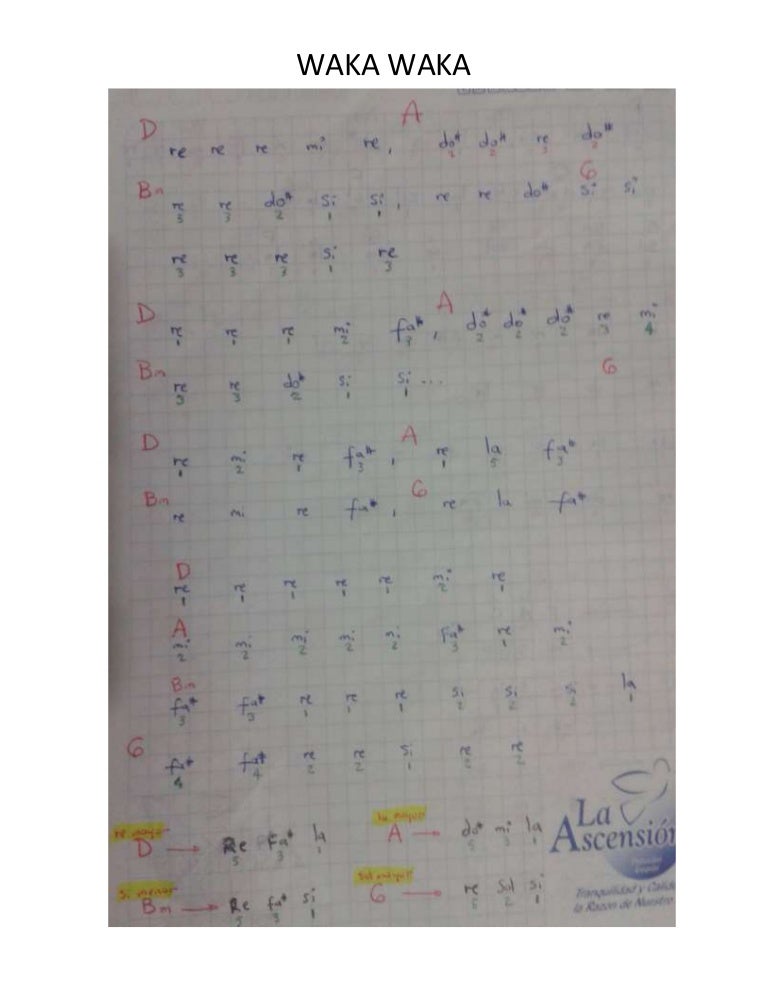 WAKA WAKA
D A
re re re mi re, do# do# re do#
2 2 3 2
Bm 6
re re do# si si, re re do# si si
3 3 2 1 1
re re re si re
3 3 3 1 3
D A
re re re mi fa#, do# do# do# re mi
1 1 1 2 3 2 2 2 3 4
Bm 6
re re do# si si...
3 3 2 1 1
D A
re mi re fa#, re la fa#
1 2 1 3 1 5 3
Bm 6
re mi re fa#, re la fa#
D
re re re re re mi re
1 1 1 1 1 2 1
A
mi mi mi mi mi fa# re mi
2 2 2 2 2 3 1 2
Bm
fa# fa# re re re si si si la
3 3 1 1 1 2 2 2 1
6
fa# fa# re re si re re
4 4 2 2 1 2 2
re mayor la mayor
D → Re Fa# la A → do# mi la
5 3 1 5 3 1
si menor Sol mayor
Bm → Re fa# si 6 → re Sol Si
5 3 1 5 2 1
La
Ascensión
Tranquilidad y Calida
la Razón de Nuestro